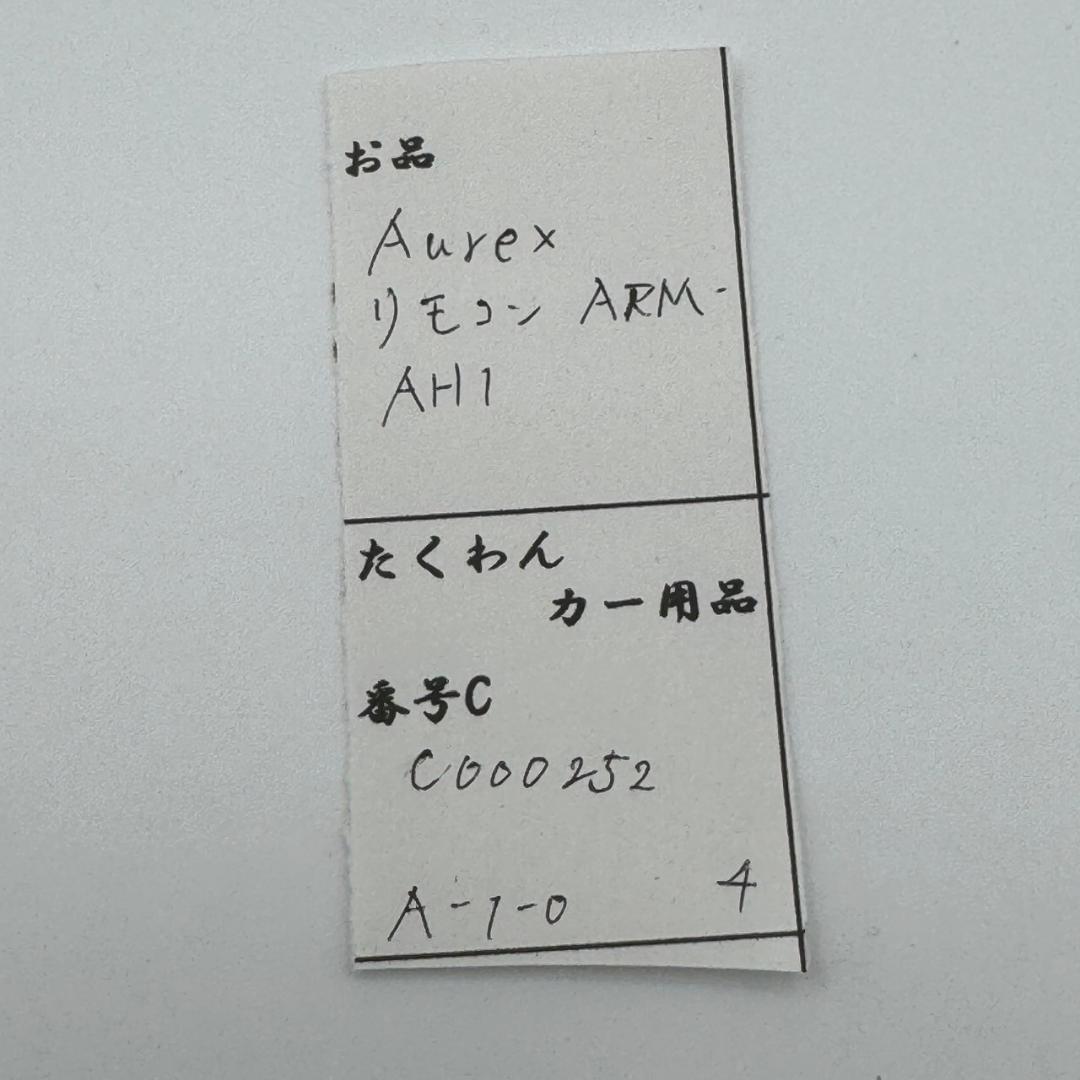 お品
Aurex
リモコン ARM-
AH1
たくわん
カー用品
番号C
C000252
A-1-0 4